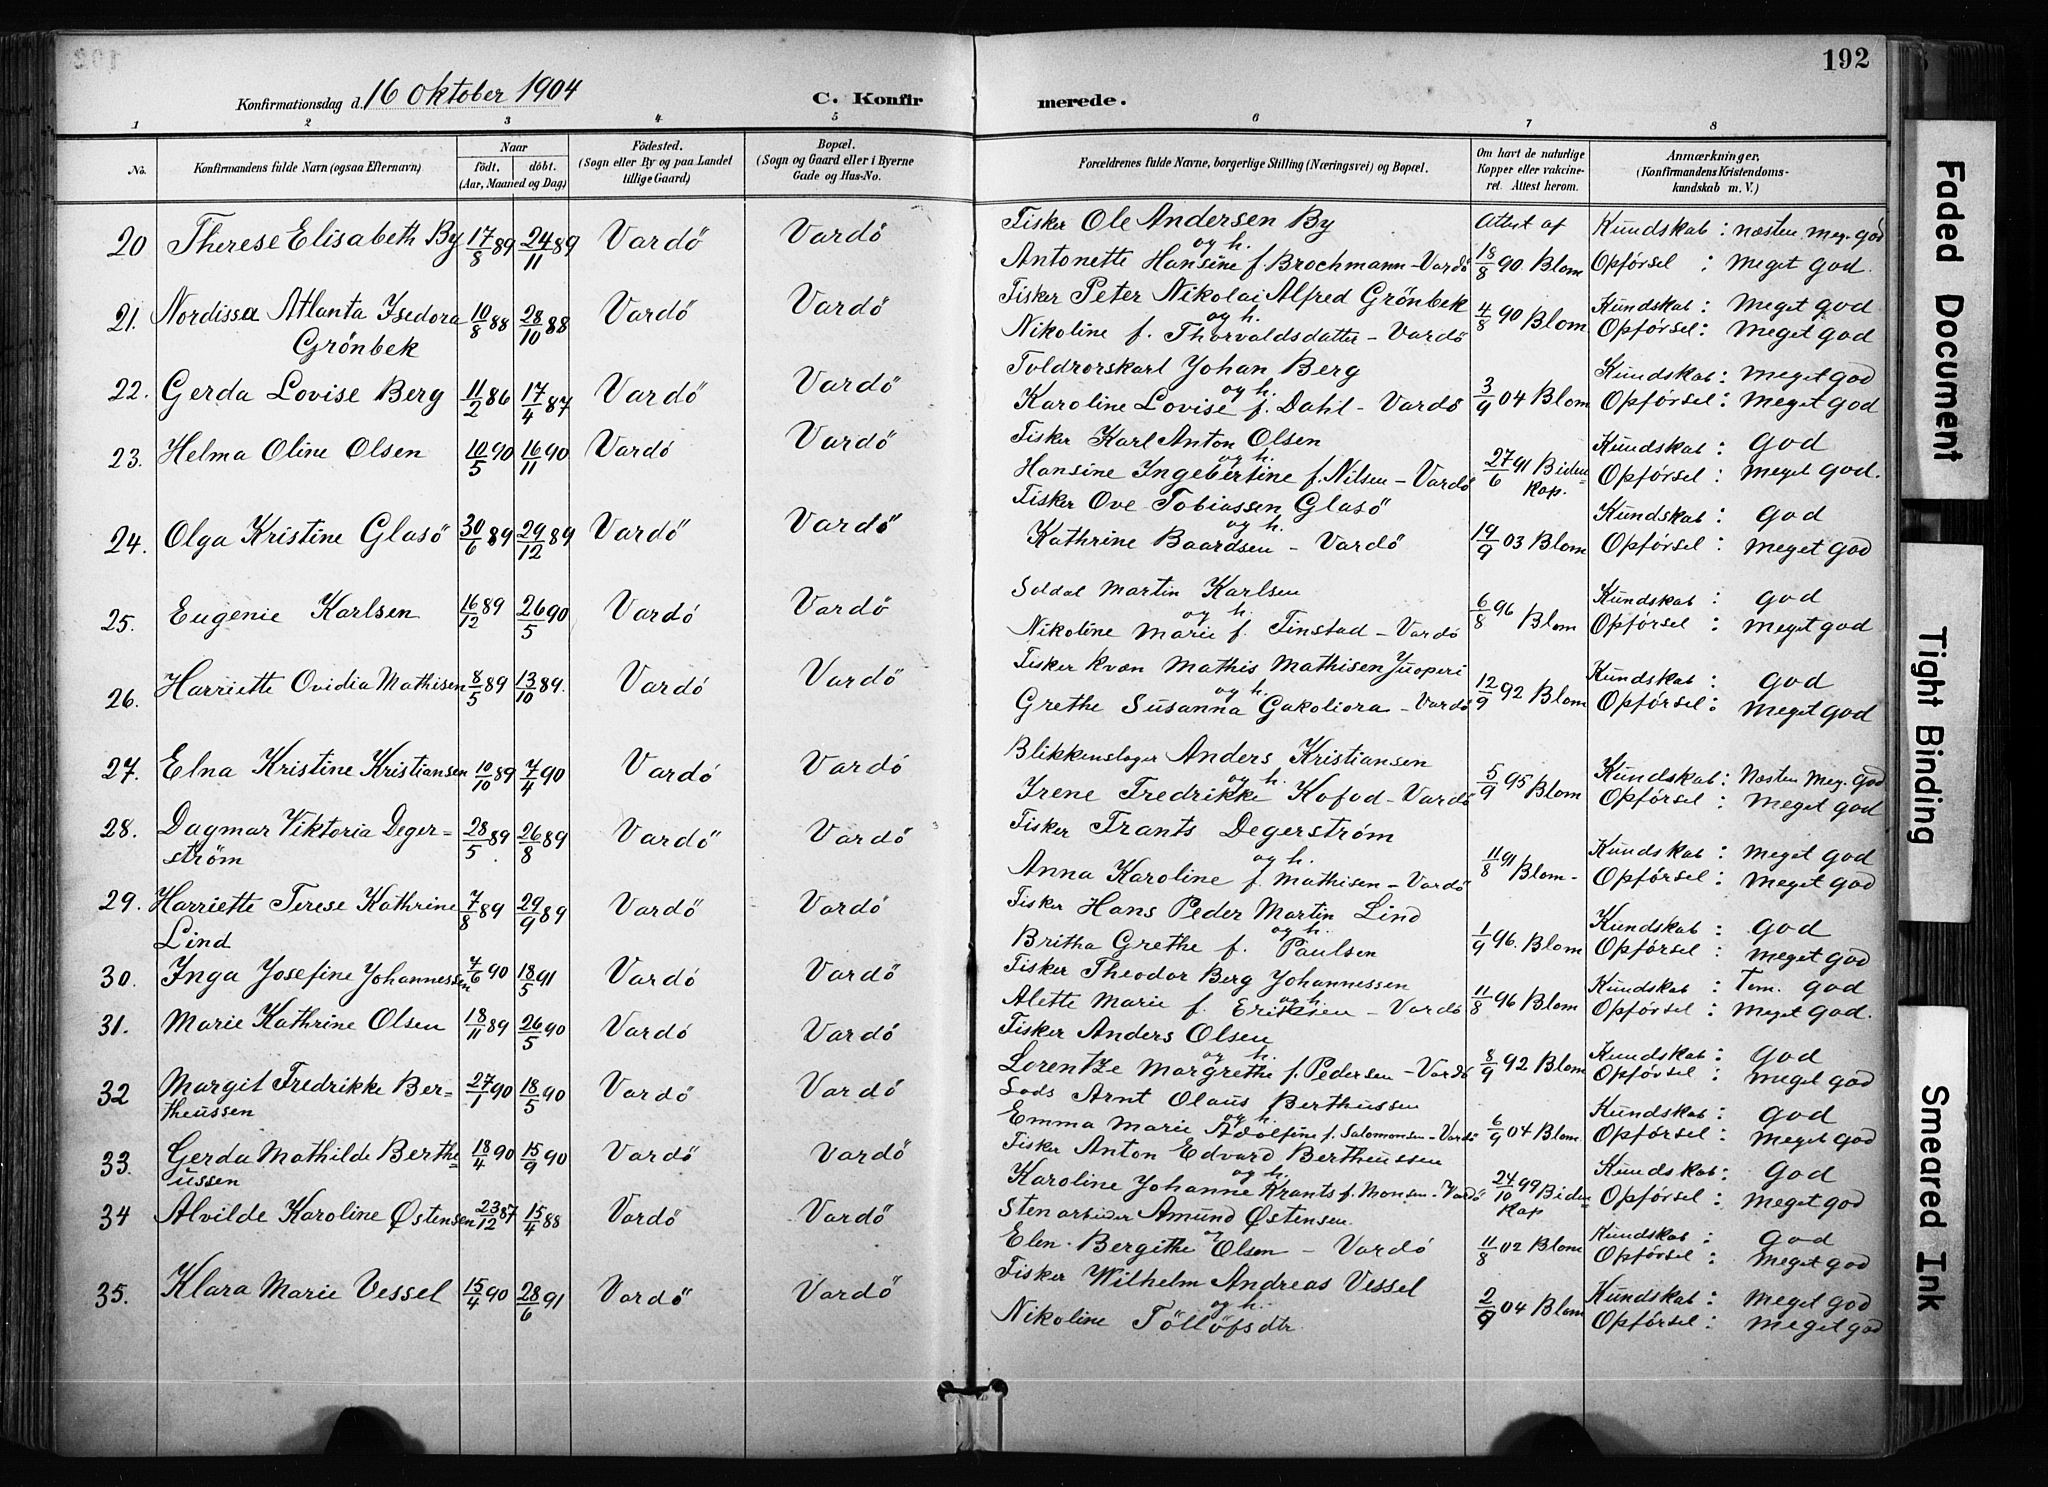 192
Konfirmationsdag d. 16 Oktober 1904 C. Konfirmerede.
1 2 3 4 5 6 7 8
No. Konfirmandens fulde Navn (ogsaa Efternavn) Naar født. døbt. (Aar, Maaned og Dag) Fødested. (Sogn eller By og paa Landet tillige Gaard) Bopæl. (Sogn og Gaard eller i Byerne Gade og Hus-No. Forældrenes fulde Navne, borgerlige Stilling (Næringsvei) og Bopæl. Om havt de naturlige Kopper eller vakcineret. Attest herom. Anmærkninger, (Konfirmandens Kristendomskundskab m. V.)
20 Therese Elisabeth By 17/8 89 24/11 89 Vardö Vardö Fisker Ole Andersen By Attest af Kundskab: næsten meg. god
og h.
Antonette Hansine f. Brochmann - Vardö 18/8 90. Blom Opførsel: meget god.
21. Nordissa Atlanta Isedora 10/8 88 28/10 88 Vardö Vardö Fisker Peter Nikolai Alfred Grönbek 4/8 90 Blom Kundskab: meget god
Grönbek og h.
Nikoline f. Thorvaldsdatter - Vardö Opførsel: meget god
22. Gerda Lovise Berg 11/2 86 17/4 87 Vardö Vardö Toldrorskarl Johan Berg Kundskab: meget god
og h.
Karoline Lovise f. Dahl - Vardö 3/9 04 Blom Opførsel: meget god
23. Helma Oline Olsen 10/5 90 16/11 90 Vardó Vardö Fisker Karl Anton Olsen Kundskab: god
og h.
Hansine Ingebertine f. Nilsen - Vardö 27/6 91 Biden= Opførsel: meget god.
kap.
24. Olga Kristine Glasö 30/6 89 29/12 89 Vardö Vardö Fisker Ove Tobiassen Glasö Kundskab: god
og h.
Kathrine Baardsen - Vardö 19/9 03 Blom Opførsel: meget god
25. Eugenie Karlsen 16/12 89 26/5 90 Vardó Vardö Soldat Martin Karlsen Kundskab: god
og h.
Nikoline Marie f. Finstad - Vardó 6/8 96 Blom Opførsel: meget god
26. Harriette Ovidia Mathisen 8/5 89 13/10 89. Vardó Vardö Fisker kvæn Mathis Mathisen Juoperi Kundskab: god
og h.
Grethe Susanna Gakoliora - Vardö 12/9 92 Blom Opførsel: meget god
27. Elna Kristine Kristiansen 10/10 89 7/4 90 Vardó Vardó Blikkenslager Anders Kristiansen Kundskab: Næsten meg. god
og h.
Irene Fredrikke Kofod - Vardö 5/9 95 Blom Opførsel: meget god
28. Dagmar Viktoria Deger= 28/5 89 26/8 89 Vardö Vardö Fisker Frants Degerström Kundskab: meget god
ström og h.
Anna Karoline f. Mathisen - Vardö 11/8 91 Blom - Opførsel: meget god
29. Harriette Terese Kathrine 7/8 89 29/9 89 Vardö Vardö Fisker Hans Peder Martin Lind Kundskab: god
Lind og h.
Britha Grethe f. Paulsen 1/9 96. Blom Opførsel: meget god
30. Inga Josefine Johannessen 4/6 90 18/5 91 Vardó Vardö Fisker Theodor Berg Johannessen Kundskab: Tem. god
og h.
Alette Marie f. Eriksen - Vardö 11/8 96 Blom Opførsel: meget god.
31. Marie Kathrine Olsen 18/11 89 26/5 90 Vardó Vardó Fisker Anders Olsen Kundskab: god
og h.
Lorentze Margrethe f. Pedersen - Vardó 8/9 92 Blom Opførsel: meget god
32 Margit Fredrikke Ber= 27/1 90 18/5 90 Vardö Vardó Lods Arnt Olaus Berthussen Kundskab: god
theussen og h.
Emma Marie Adolfine f. Salomonsen - Vardö 6/9 04 Blom. Opførsel: meget god
33. Gerda Mathilde Berthe= 18/4 90 15/9 90 Vardö Vardö Fisker Anton Edvard Bertheussen Kundskab: god
ussen og h.
Karoline Johanne Krants f. Monsen - Vardö 24/10 99 Biden= Opførsel: meget god
kap
34 Alvilde Karoline Østensen 23/12 87 15/4 88 Vardö Vardö Stenarbeider Amund Østensen Kundskab: god
og
Elen Bergithe Olsen - Vardó 11/8 02 Blom Opførsel: meget god
35. Klara Marie Vessel 15/4 90 28/6 91 Vardö Vardö Fisker Wilhelm Andreas Vessel Kundskab: meget god
og h.
Nikoline Töllöfsdtr. 2/9 04 Blom Opførsel: meget god
Faded Document
Tight Binding
Smeared Ink